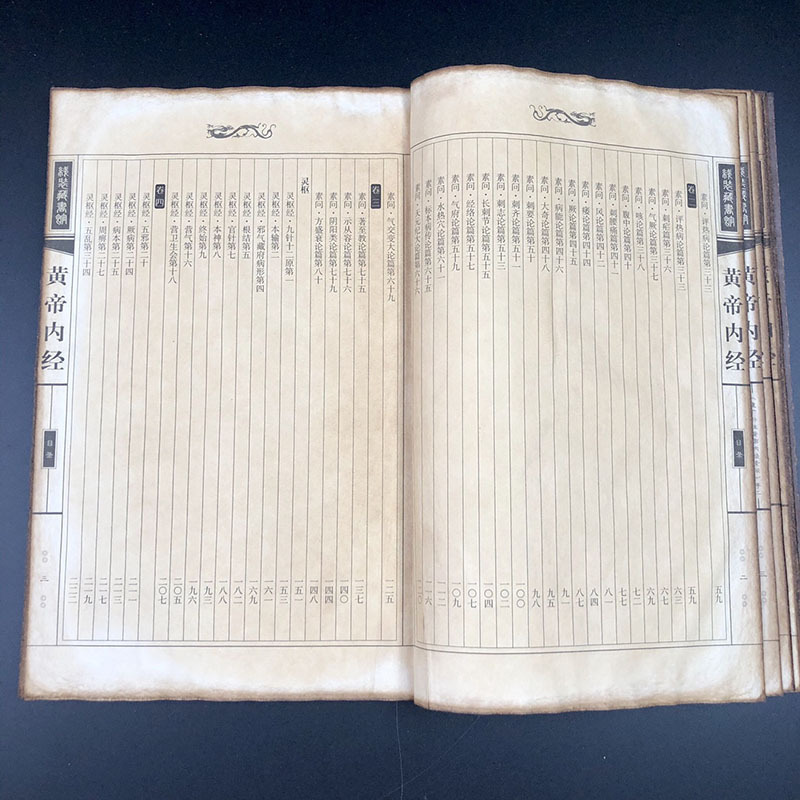 黄帝内经
目录
二
素问·评热病论篇第三十三 五九
卷二 五九
素问·评热病论篇第三十三 六三
素问·刺疟篇第三十六 六七
素问·气厥论篇第三十七 六九
素问·咳论篇第三十八 七二
素问·腹中论篇第四十 七七
素问·刺腰痛篇第四十一 八一
素问·风论篇第四十二 八四
素问·痿论篇第四十四 八七
素问·厥论篇第四十五 九一
素问·病能论篇第四十六 九五
素问·大奇论篇第四十八 九八
素问·刺要论篇第五十 一〇〇
素问·刺齐论篇第五十一 一〇二
素问·刺志论篇第五十三 一〇四
素问·长刺节论篇第五十五 一〇七
素问·经络论篇第五十七 一〇九
素问·气府论篇第五十九 一一二
素问·水热穴论篇第六十一 一一六
素问·标本病传论篇第六十五
素问·天元纪大论篇第六十六 一二〇
素问·气交变大论篇第六十九 一二五
卷三
素问·著至教论篇第七十五 一三七
素问·示从容论篇第七十六 一四〇
素问·阴阳类论篇第七十九 一四四
素问·方盛衰论篇第八十 一四八
灵枢
灵枢经·九针十二原第一 一五一
灵枢经·本输第二 一五三
灵枢经·邪气藏府病形第四 一六一
灵枢经·根结第五 一六九
灵枢经·官针第七 一八二
灵枢经·本神第八 一八八
灵枢经·终始第九 一九三
灵枢经·营气第十六 二〇五
灵枢经·营卫生会第十八 二〇七
卷四
灵枢经·五邪第二十 二一一
灵枢经·厥病第二十四 二一三
灵枢经·病本第二十五 二一七
灵枢经·周痹第二十七 二一九
灵枢经·五乱第三十四 二二二
线装藏书馆
黄帝内经
目录
三